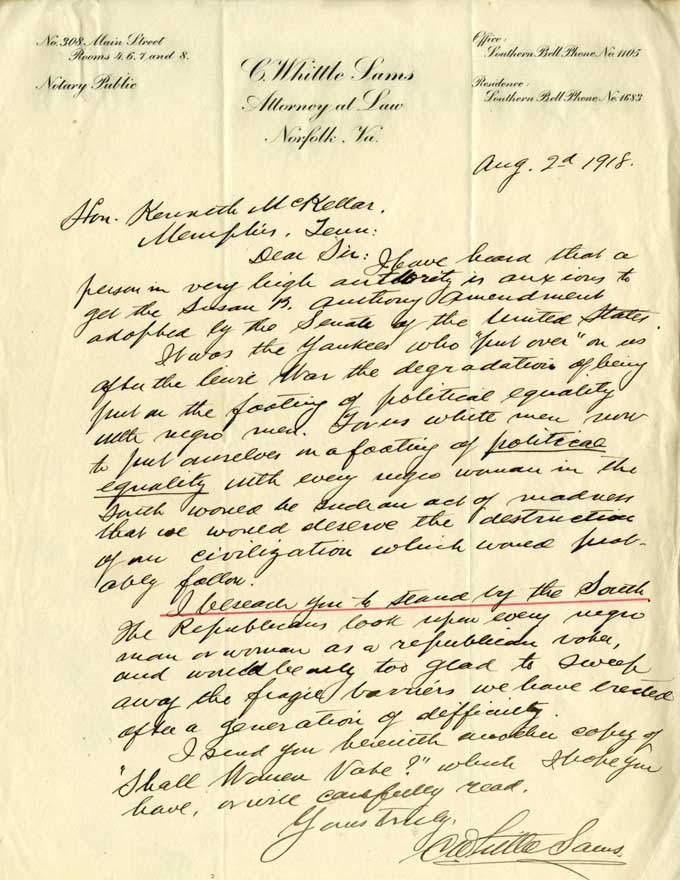 No. 308 Main Street
Rooms 4. 6. 7 and 8.
Notary Public
C. Whittle Sams
Attorney at Law
Norfolk, Va.
Office:
Southern Bell Phone No. 1105
Residence:
Southern Bell Phone No. 1683
Aug. 2d 1918.
Hon. Kenneth McKellar,
Memphis, Tenn:
Dear Sir: I have heard that a
person in very high authority is anxious to
get the Susan B. Anthony Amendment
adopted by the Senate of the United States.
It was the Yankees who "put over" on us
after the Civil War the degradation of being
put on the footing of political equality
with negro men. For us white men now
to put ourselves on a footing of political
equality with every negro woman in the
South would be such an act of madness
that we would deserve the destruction
of our civilization which would prob-
ably follow.
I beseech you to stand by the South
The Republicans look upon every negro
man or woman as a republican voter,
and would be only too glad to sweep
away the fragile barriers we have erected
after a generation of difficulty.
I send you herewith another copy of
"Shall Women Vote?" which I hope you
have, or will carefully read.
Yours truly,
C Whittle Sams.